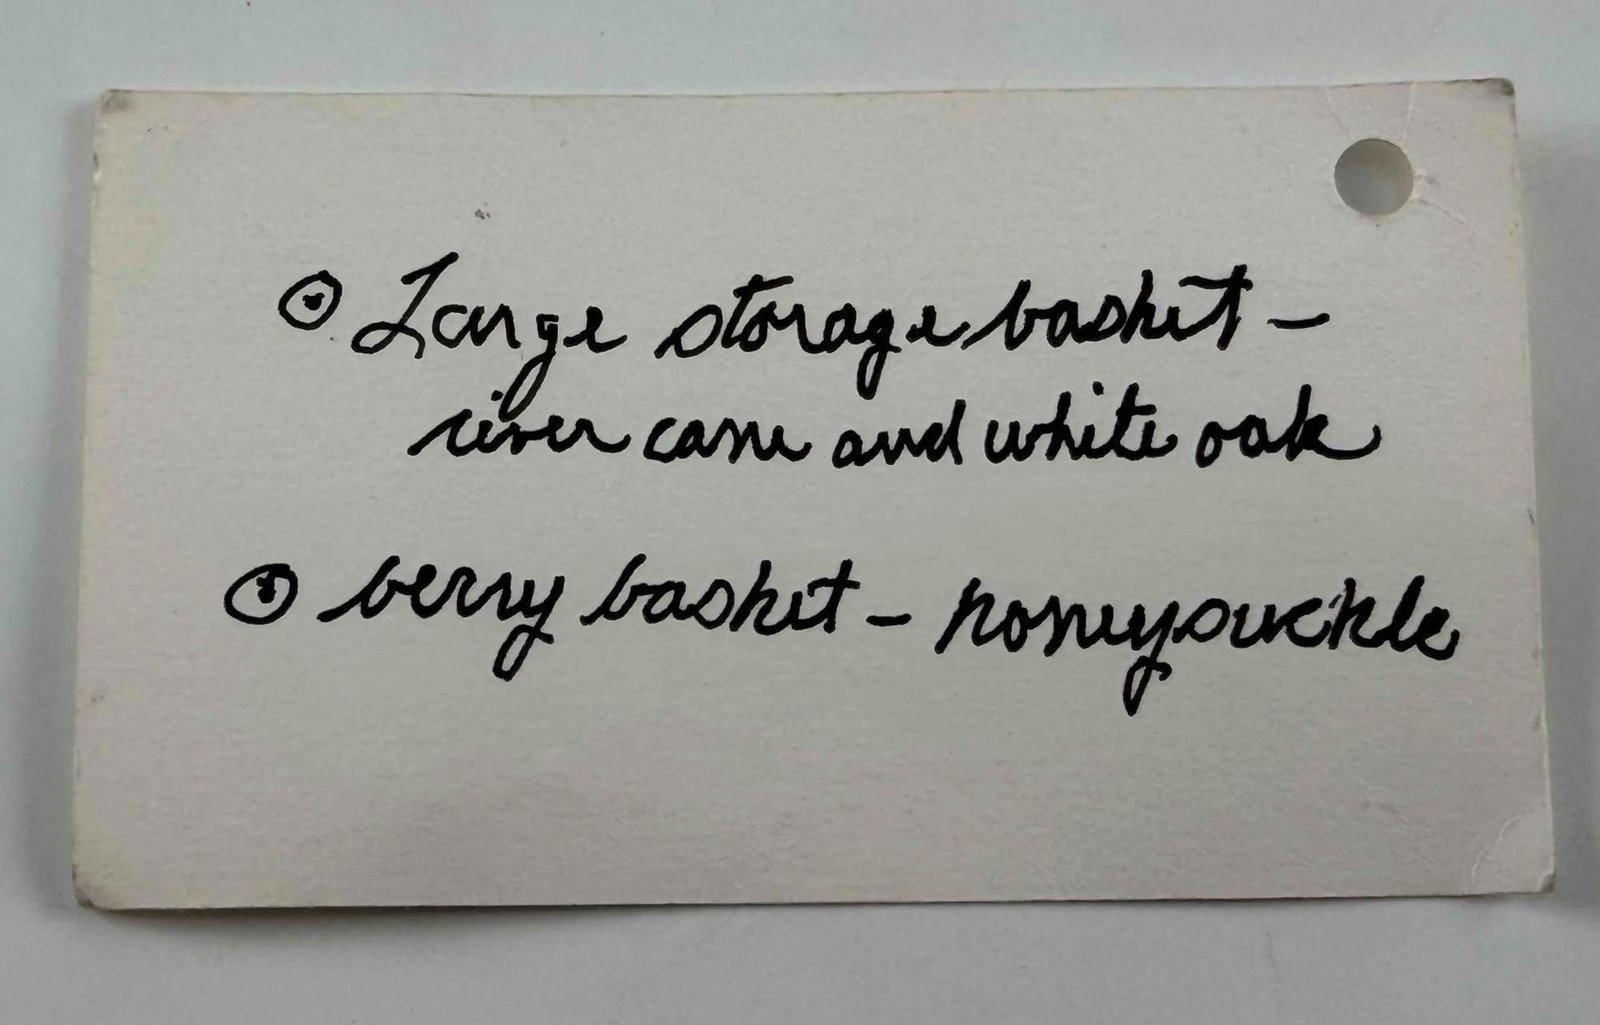 ⊙ Large storage basket –
river cane and white oak
⊙ berry basket – honeysuckle